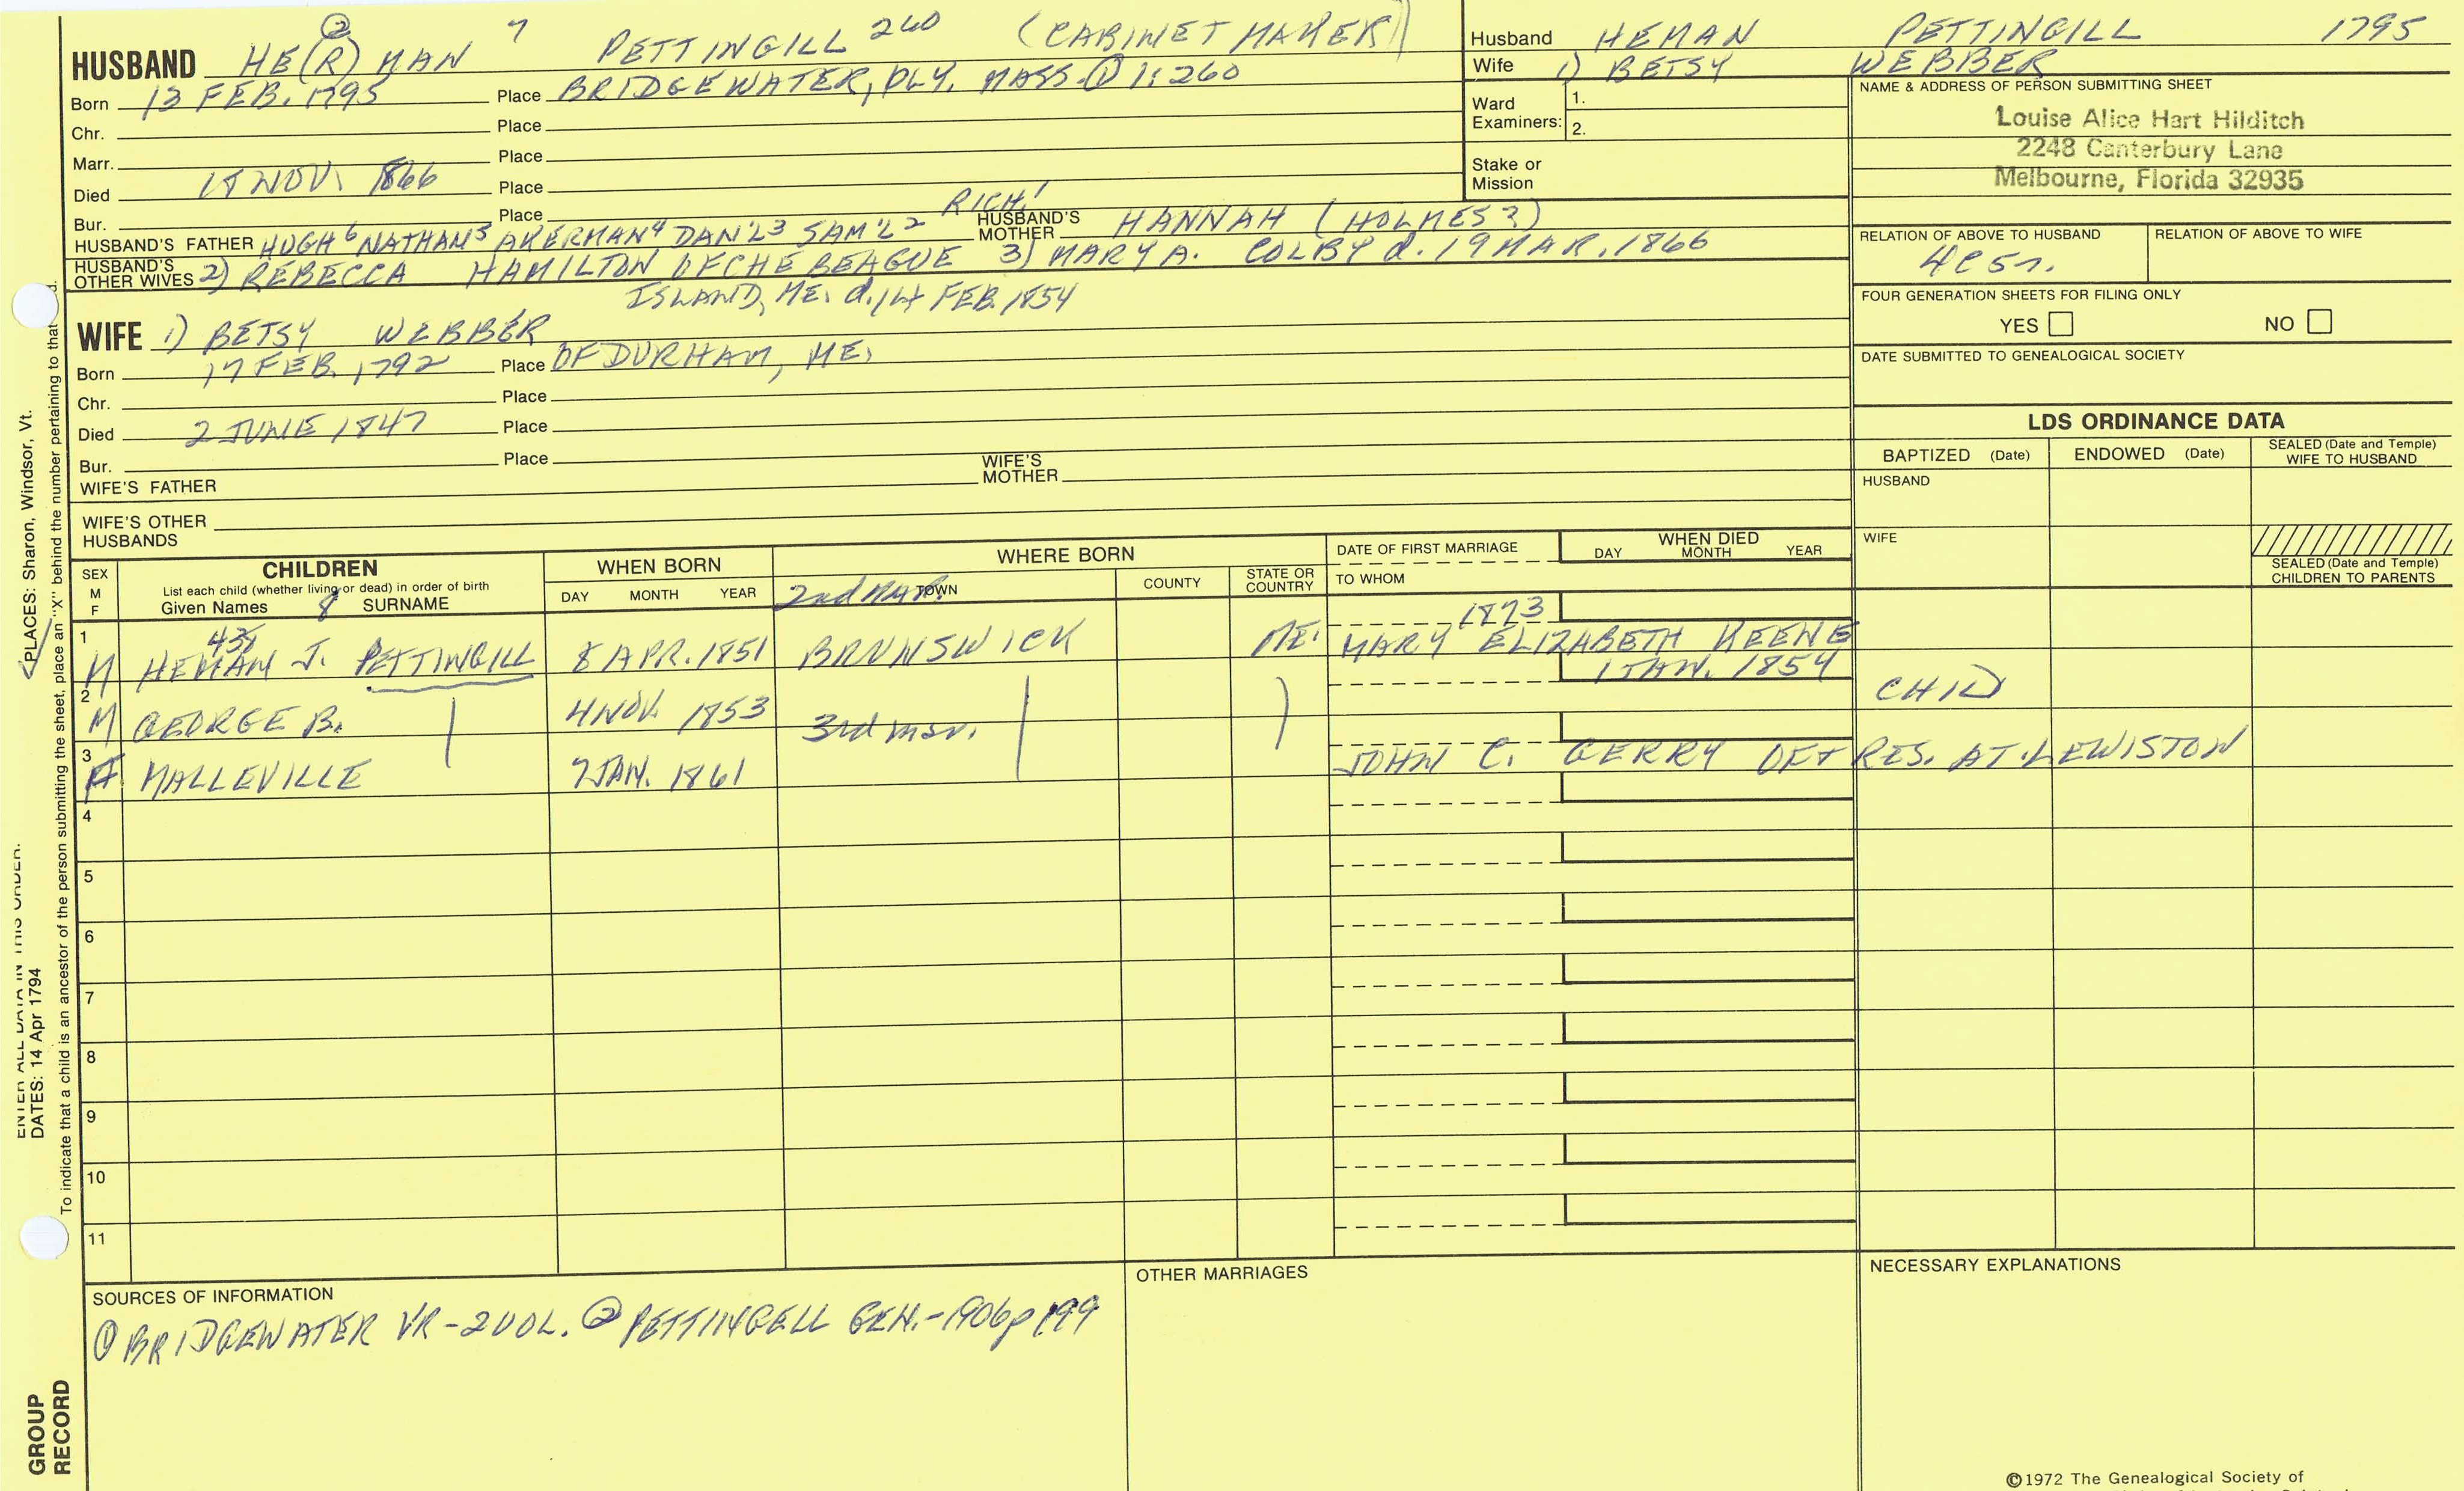 HUSBAND HE(R)MAN ② 7 PETTINGILL 260 (CABINET MAKER)
Born 13 FEB. 1795 Place BRIDGEWATER, PLY. MASS. ① 1:260
Chr. Place
Marr. Place
Died 18 NOV. 1866 Place
Bur. Place
HUSBAND'S FATHER HUGH 6 NATHAN 5 AKERMAN 4 DAN'L 3 SAM'L 2 RICH. 1 HUSBAND'S MOTHER HANNAH (HOLMES?)
HUSBAND'S OTHER WIVES 2) REBECCA HAMILTON OF CHEBEAGUE 3) MARY A. COLBY d. 19 MAR. 1866
ISLAND, ME. d. 14 FEB. 1854
WIFE 1) BETSY WEBBER
Born 17 FEB. 1792 Place OF DURHAM, ME.
Chr. Place
Died 2 JUNE 1847 Place
Bur. Place
WIFE'S FATHER WIFE'S MOTHER
WIFE'S OTHER HUSBANDS
Husband HEMAN PETTINGILL 1795
Wife 1) BETSY WEBBER
Ward Examiners: 1.
2.
Stake or Mission
NAME & ADDRESS OF PERSON SUBMITTING SHEET
Louise Alice Hart Hilditch
2248 Canterbury Lane
Melbourne, Florida 32935
RELATION OF ABOVE TO HUSBAND RELATION OF ABOVE TO WIFE
4C5r.
FOUR GENERATION SHEETS FOR FILING ONLY
YES NO
DATE SUBMITTED TO GENEALOGICAL SOCIETY
LDS ORDINANCE DATA
BAPTIZED (Date) ENDOWED (Date) SEALED (Date and Temple) WIFE TO HUSBAND
HUSBAND
WIFE
SEALED (Date and Temple) CHILDREN TO PARENTS
SEX M F
CHILDREN
List each child (whether living or dead) in order of birth
Given Names 8 SURNAME
WHEN BORN
DAY MONTH YEAR
WHERE BORN
2nd mar. TOWN COUNTY STATE OR COUNTRY
DATE OF FIRST MARRIAGE
TO WHOM
WHEN DIED
DAY MONTH YEAR
438 1873
1 M HEMAN J. PETTINGILL 8 APR. 1851 BRUNSWICK ME. MARY ELIZABETH KEENE
1 JAN. 1854
2 M GEORGE B. 4 NOV. 1853 CHILD
3rd mar.
3 F MALLEVILLE 7 JAN. 1861 JOHN C. GERRY OF & RES. AT LEWISTON
4
5
6
7
8
9
10
11
SOURCES OF INFORMATION
① BRIDGEWATER VR-2VOL. ② PETTINGELL GEN.-1906 p 199
OTHER MARRIAGES
NECESSARY EXPLANATIONS
©1972 The Genealogical Society of
PLACES: Sharon, Windsor, Vt.
ENTER ALL DATA IN THIS ORDER:
DATES: 14 Apr 1794
To indicate that a child is an ancestor of the person submitting the sheet, place an "X" behind the number pertaining to that
GROUP
RECORD